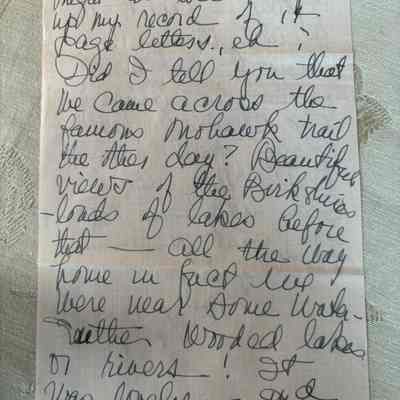 up my record of 14
page letters., eh?
Did I tell you that
we came across the
famous Mohawk trail
the other day? Beautiful
views of the Birkshires
- loads of lakes before
that — all the way
home in fact we
were near some water-
either wooded lakes
or rivers! It
was lovely — and